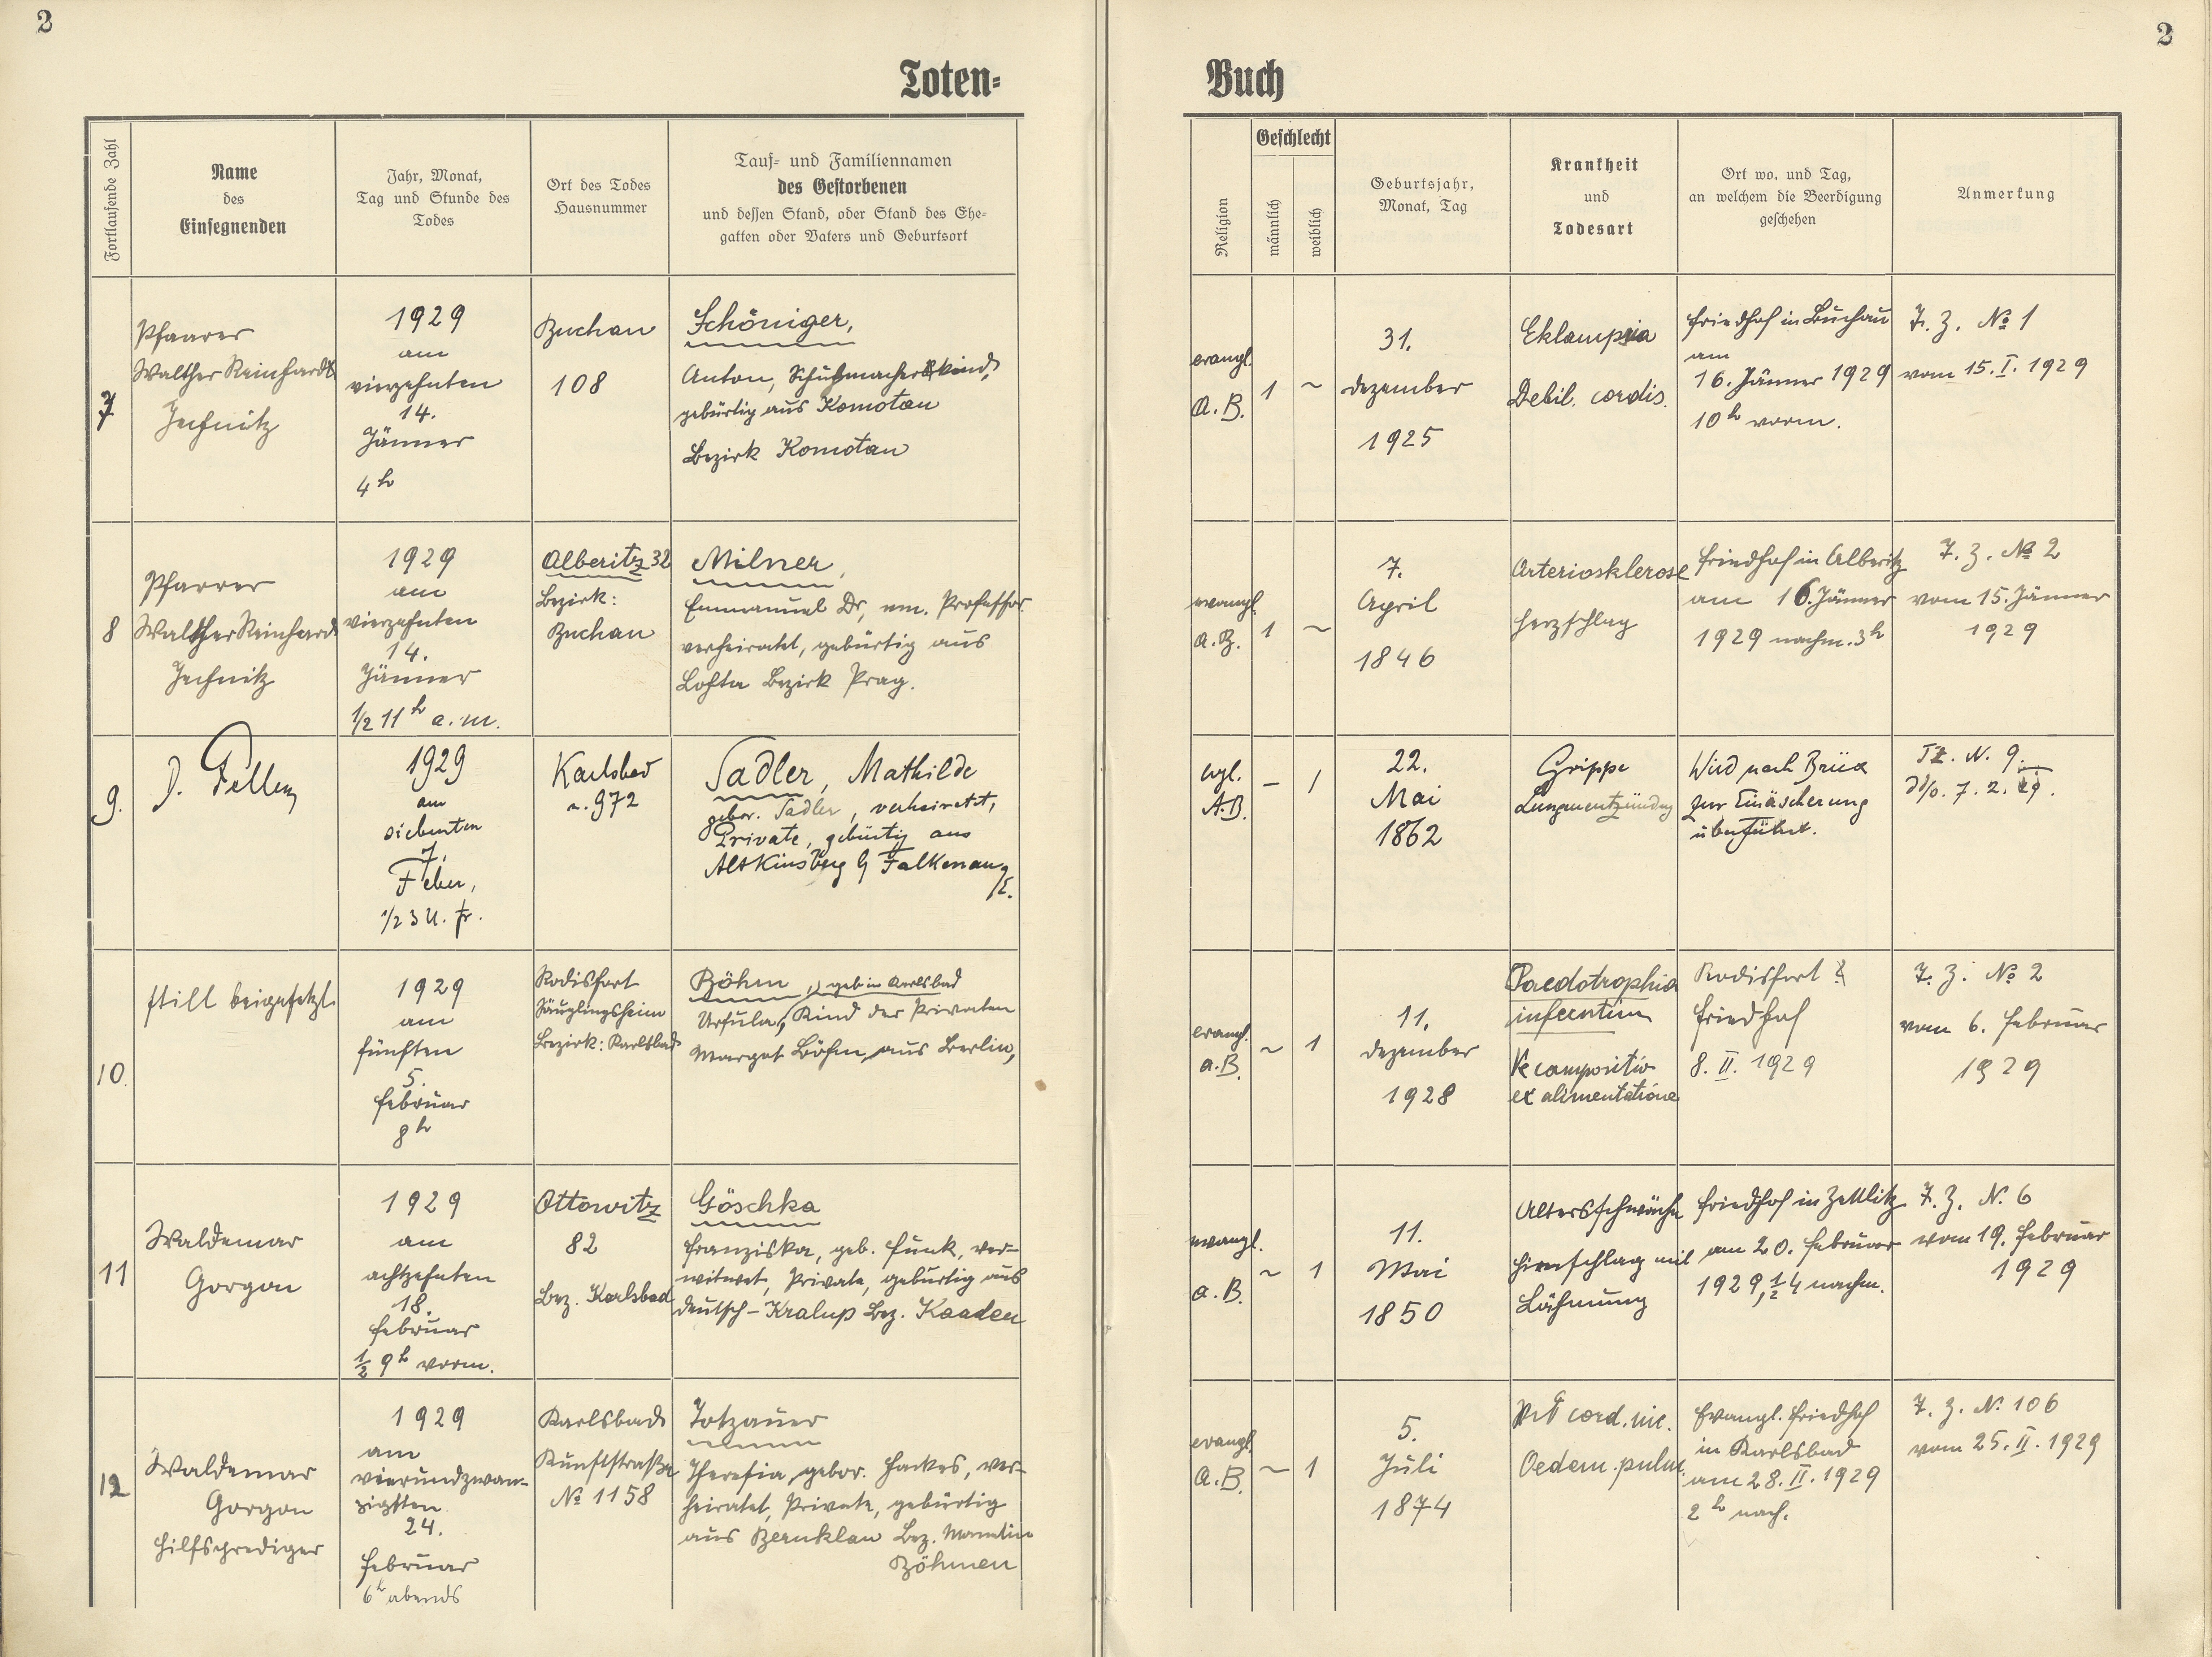 2
2
Toten=
Buch
Fortlaufende Zahl
Name
des
Einsegnenden
Jahr, Monat,
Tag und Stunde des
Todes
Ort des Todes
Hausnummer
Tauf= und Familiennamen
des Gestorbenen
und dessen Stand, oder Stand des Ehe=
gatten oder Vaters und Geburtsort
Religion
Geschlecht
männlich
weiblich
Geburtsjahr,
Monat, Tag
Krankheit
und
Todesart
Ort wo, und Tag,
an welchem die Beerdigung
geschehen
Anmerkung
7
Pfarrer
Walther Reinhardt
Jechnitz
1929
am
vierzehnten
14.
Jänner
4h
Buchau
108
Schöniger,
Anton, Schuhmacherskind,
gebürtig aus Komotau
Bezirk Komotau
evangl.
A.B.
1
~
31.
Dezember
1925
Eklampsia
Debil. cordis.
Friedhof in Buchau
am
16. Jänner 1929
10h vorm.
T. Z. No 1
vom 15. I. 1929
8
Pfarrer
Walther Reinhardt
Jechnitz
1929
am
vierzehnten
14.
Jänner
1/2 11h a.m.
Alberitz 32
Bezirk:
Buchau
Milner,
Emmanuel Dr, em. Professor
verheiratet, gebürtig aus
Bezirk Prag.
evangl.
A.B.
1
~
7.
April
1846
Arteriosklerose
Herzschlag
Friedhof in Alberitz
am 16. Jänner
1929 nachm. 3h
T. Z. No 2
vom 15. Jänner
1929
9.
D.
1929
am
siebenten
7.
Feber,
1/2 3 U. fr.
Karlsbad
n. 972
Sadler, Mathilde
gebor. Sadler, verheiratet,
Private, gebürtig aus
Alt Kinsberg b Falkenau
/E.
evgl.
A.B.
–
1
22.
Mai
1862
Grippe
Lungenentzündung
Wird nach Brüx
zur Einäscherung
überführt.
TZ. N. 9.
dto. 7. 2. 29.
10.
still beigesetzt.
1929
am
fünften
5.
Februar
8h
Rodisfort
Säuglingsheim
Bezirk: Karlsbad
Böhm, geb in Karlsbad
Ursula, Kind der Privaten
Margot Böhm, aus Berlin,
evangl.
A.B.
~
1
11.
Dezember
1928
Paedotrophia
ex alimentatione
Rodisfort
Friedhof
8. II. 1929
T. Z. No 2
vom 6. Februar
1929
11
Waldemar
Gorgon
1929
am
achtzehnten
18.
Februar
1/2 9h vorm.
Ottowitz
82
Bez. Karlsbad
Göschka
Franziska, geb. Funk, ver-
witwet, Private, gebürtig aus
Deutsch-Kralup Bez. Kaaden
evangl.
A.B.
~
1
11.
Mai
1850
Altersschwäche
Hirnschlag mit
Lähmung
Friedhof in Zettlitz
am 20. Februar
1929, 1/2 4 nachm.
T. Z. N. 6
vom 19. Februar
1929
12
Waldemar
Gorgon
Hilfsprediger
1929
am
vierundzwan-
zigsten
24.
Februar
6h abends
Karlsbad
Kunststraße
No 1158
Totzauer
Theresia, gebor. Hackes, ver-
heiratet, Private, gebürtig
aus Bernklau Bez. Manetin
Böhmen
evangl.
A.B.
~
1
5.
Juli
1874
cord.
Oedem. pulm.
Evangl. Friedhof
in Karlsbad
am 28. II. 1929
2h nach.
T. Z. No 106
vom 25. II. 1929